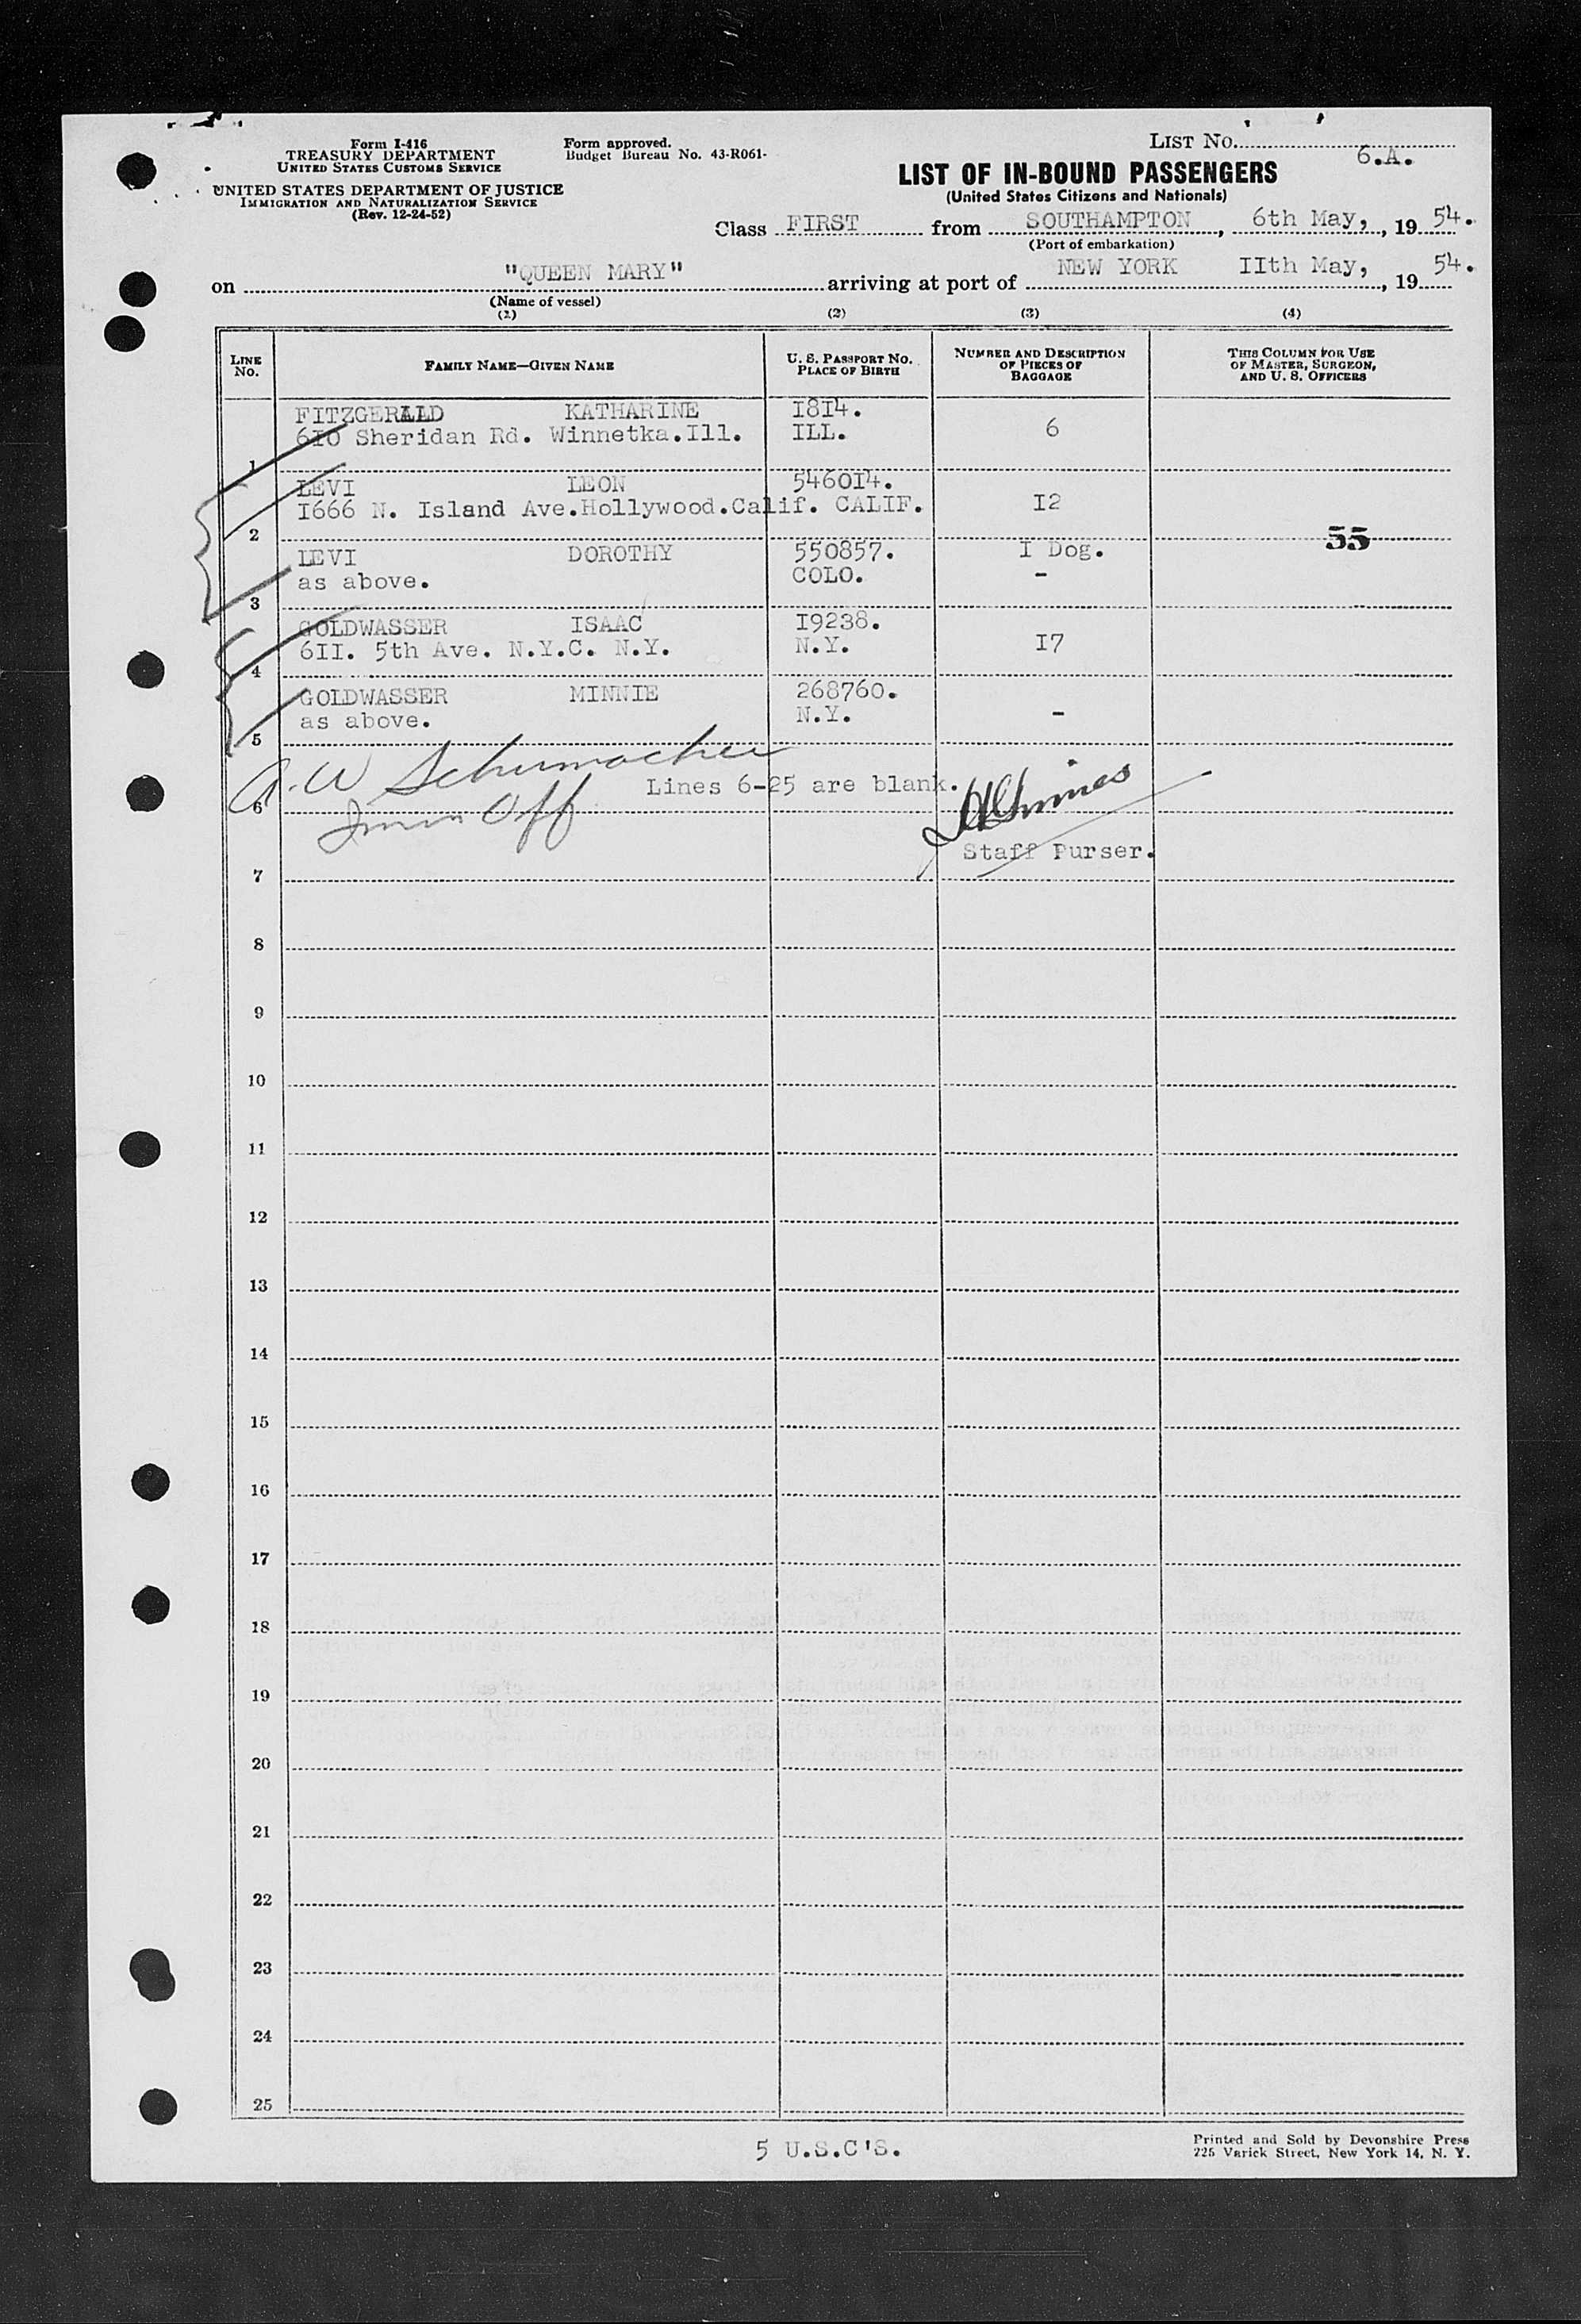 LIST No. 6.A.
Form I-416
TREASURY DEPARTMENT
UNITED STATES CUSTOMS SERVICE
UNITED STATES DEPARTMENT OF JUSTICE
IMMIGRATION AND NATURALIZATION SERVICE
(Rev. 12-24-52)
Form approved.
Budget Bureau No. 43-R061-
LIST OF IN-BOUND PASSENGERS
(United States Citizens and Nationals)
Class FIRST from SOUTHAMPTON, 6th May, , 19 54.
(Port of embarkation)
on "QUEEN MARY" arriving at port of NEW YORK IIth May, , 19 54.
(Name of vessel)
(1) (2) (3) (4)
LINE No. FAMILY NAME—GIVEN NAME U. S. PASSPORT No. PLACE OF BIRTH NUMBER AND DESCRIPTION OF PIECES OF BAGGAGE THIS COLUMN FOR USE OF MASTER, SURGEON, AND U. S. OFFICERS
FITZGERALD KATHARINE I8I4.
6I0 Sheridan Rd. Winnetka.Ill. ILL. 6
1
LEVI LEON 5460I4.
I666 N. Island Ave.Hollywood.Calif. CALIF. I2
2
55
LEVI DOROTHY 550857. I Dog.
as above. COLO. -
3
GOLDWASSER ISAAC I9238.
6II. 5th Ave. N.Y.C. N.Y. N.Y. I7
4
GOLDWASSER MINNIE 268760.
as above. N.Y. -
5
A.W Schumacher
Lines 6-25 are blank.
6
Imm Off
Staff Purser.
7
8
9
10
11
12
13
14
15
16
17
18
19
20
21
22
23
24
25
5 U.S.C'S.
Printed and Sold by Devonshire Press
225 Varick Street, New York 14, N. Y.